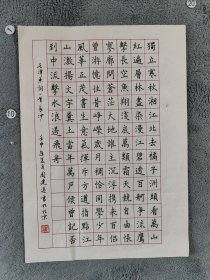 獨立寒秋湘江北去橘子洲頭看萬山
紅遍層林盡染漫江碧透百舸爭流鷹
擊長空魚翔淺底萬類霜天競自由悵
寥廓問蒼茫大地誰主沉浮攜來百侶
曾游憶往昔崢嶸歲月稠恰同學少年
風華正茂書生意氣揮斥方遒指點江
山激揚文字糞土當年萬戶侯曾記否
到中流擊水浪遏飛舟
毛澤東詞一首長沙
壬申